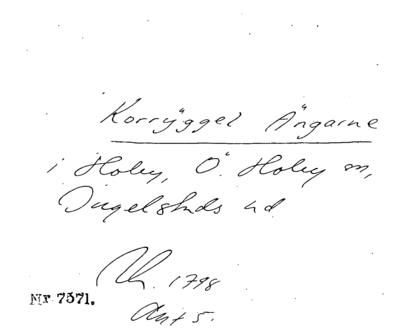 Korrÿggel Ängarne
i Hoby, Ö. Hoby sn,
Ingelstads hd
1798
Akt 5.
Nr 7371.